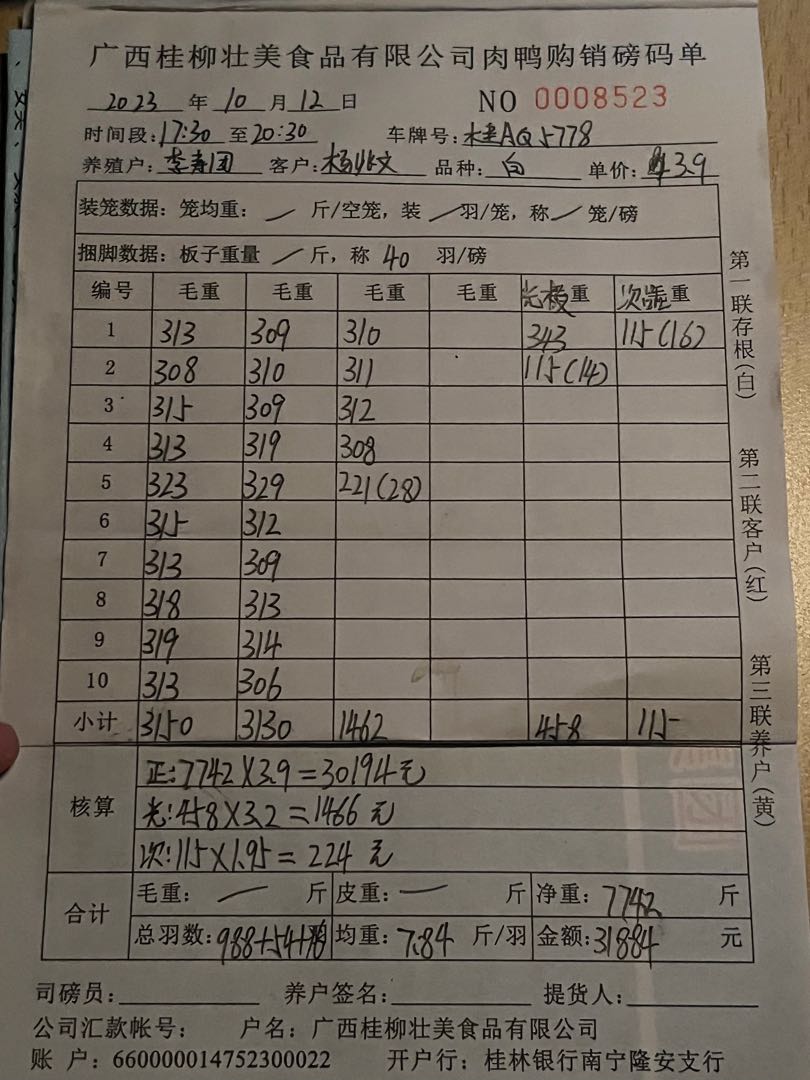 广西桂柳壮美食品有限公司肉鸭购销磅码单
2023 年 10 月 12 日 NO 0008523
时间段: 17:30 至 20:30 车牌号: 桂AQ5778
养殖户: 李寿团 客户: 杨业文 品种: 白 单价: 3.9
装笼数据: 笼均重: / 斤/空笼, 装 / 羽/笼, 称 / 笼/磅
捆脚数据: 板子重量 / 斤, 称 40 羽/磅
编号 毛重 毛重 毛重 毛重 光 重 次 重
1 313 309 310 343 115(16)
2 308 310 311 115(14)
3 315 309 312
4 313 319 308
5 323 329 221(28)
6 315 312
7 313 309
8 318 313
9 319 314
10 313 306
小计 3150 3130 1462 458 115
核算
正:7742×3.9=30194元
光:458×3.2=1466元
次:115×1.95=224元
合计
毛重: — 斤 皮重: — 斤 净重: 7742 斤
总羽数: 988+54+ 均重: 7.84 斤/羽 金额: 31884 元
司磅员: 养户签名: 提货人:
公司汇款帐号: 户名: 广西桂柳壮美食品有限公司
账 户: 660000014752300022 开户行: 桂林银行南宁隆安支行
第一联存根(白)
第二联客户(红)
第三联养户(黄)